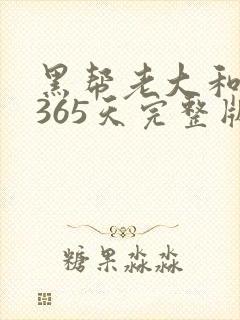 黑帮老大和
365天完整版
糖果淼淼